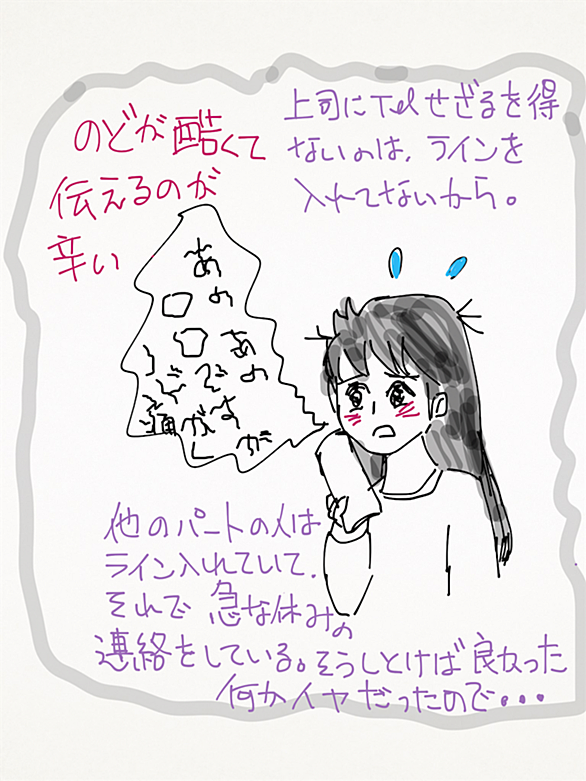 上司にTelせざるを得
ないのは、ラインを
入れてないから。
のどが酷くて
伝えるのが
辛い
あの
あの
のどが
他のパートの人は
ライン入れていて、
それで 急な休みの
連絡をしている。そうしとけば良かった
何かイヤだったので・・・